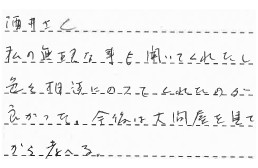 酒井さく
私の無理な事も聞いてくれたし
色々相談にのってくれたのが
良かった。今後は大問屋を見て
から考へる。